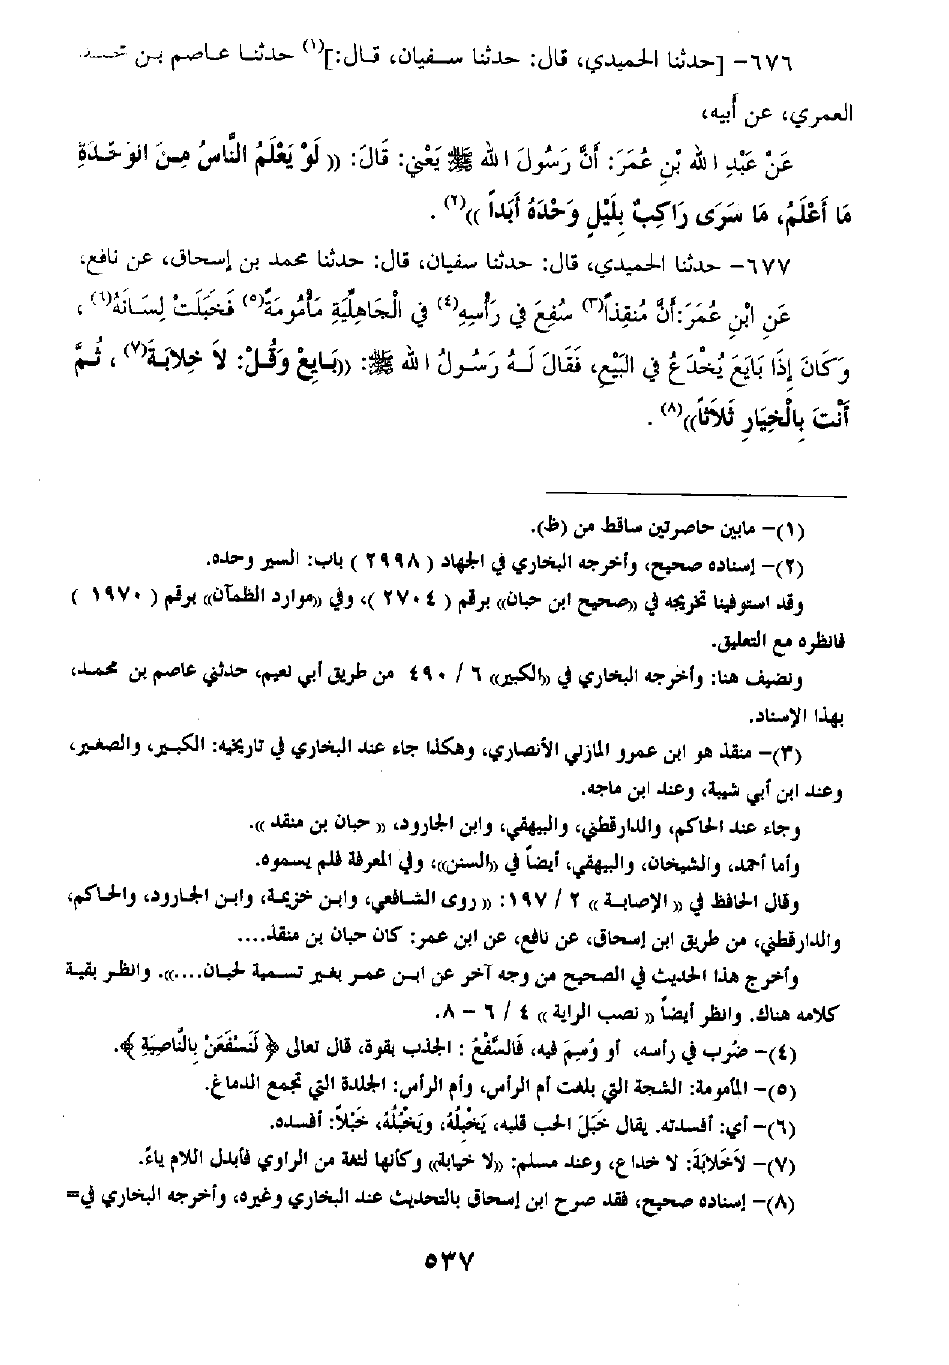 ٦٧٦- [حدثنا الحميدي، قال: حدثنا سفيان، قال:](١) حدثنا عاصم بن محمد
العمري، عن أبيه،
عَنْ عَبْدِ اللهِ بْنِ عُمَرَ: أَنَّ رَسُولَ اللهِ ﷺ يَعْنِي: قَالَ: ((لَوْ يَعْلَمُ النَّاسُ مِنَ الوَحْدَةِ
مَا أَعْلَمُ، مَا سَرَى رَاكِبٌ بِلَيْلٍ وَحْدَهُ أَبَداً))(٢).
٦٧٧- حدثنا الحميدي، قال: حدثنا سفيان، قال: حدثنا محمد بن إسحاق، عن نافع،
عَنِ ابْنِ عُمَرَ: أَنَّ مُنْقِذاً(٣) سُفِعَ فِي رَأْسِهِ(٤) فِي الْجَاهِلِيَّةِ مَأْمُومَةً(٥) فَخَبَلَتْ لِسَانَهُ(٦)،
وَكَانَ إِذَا بَايَعَ يُخْدَعُ فِي البَيْعِ، فَقَالَ لَهُ رَسُولُ اللهِ ﷺ: ((بَايِعْ وَقُلْ: لاَ خِلابَةَ(٧)، ثُمَّ
أَنْتَ بِالْخِيَارِ ثَلاَثاً))(٨).
(١)- مابين حاصرتين ساقط من (ظ).
(٢)- إسناده صحيح، وأخرجه البخاري في الجهاد (٢٩٩٨) باب: السير وحده.
وقد استوفينا تخريجه في ((صحيح ابن حبان)) برقم (٢٧٠٤)، وفي ((موارد الظمآن)) برقم (١٩٧٠)
فانظره مع التعليق.
ونضيف هنا: وأخرجه البخاري في ((الكبير)) ٦/ ٤٩٠ من طريق أبي نعيم، حدثني عاصم بن محمد،
بهذا الإسناد.
(٣)- منقذ هو ابن عمرو المازني الأنصاري، وهكذا جاء عند البخاري في تاريخيه: الكبير، والصغير،
وعند ابن أبي شيبة، وعند ابن ماجه.
وجاء عند الحاكم، والدارقطني، والبيهقي، وابن الجارود، ((حبان بن منقذ)).
وأما أحمد، والشيخان، والبيهقي، أيضاً في ((السنن))، وفي المعرفة فلم يسموه.
وقال الحافظ في ((الإصابة)) ٢/ ١٩٧: ((روى الشافعي، وابن خزيمة، وابن الجارود، والحاكم،
والدارقطني، من طريق ابن إسحاق، عن نافع، عن ابن عمر: كان حبان بن منقذ....
وأخرج هذا الحديث في الصحيح من وجه آخر عن ابن عمر بغير تسمية لحبان....)). وانظر بقية
كلامه هناك. وانظر أيضاً ((نصب الراية)) ٤/ ٦ - ٨.
(٤)- ضُرِب في رأسه، أو وُسِمَ فيه، فَالسَّفْعُ: الجذب بقوة، قال تعالى ﴿لَنَسْفَعَنْ بِالنَّاصِيَةِ﴾.
(٥)- المأمومة: الشجة التي بلغت أم الرأس، وأم الرأس: الجلدة التي تجمع الدماغ.
(٦)- أي: أفسدته. يقال خَبَلَ الحب قلبه، يَخْبِلُهُ، ويَخْبُلُهُ، خَبْلاً: أفسده.
(٧)- لاَخِلابَةَ: لا خداع، وعند مسلم: ((لا خيابة)) وكأنها لثغة من الراوي فأبدل اللام ياءً.
(٨)- إسناده صحيح، فقد صرح ابن إسحاق بالتحديث عند البخاري وغيره، وأخرجه البخاري في=
٥٣٧